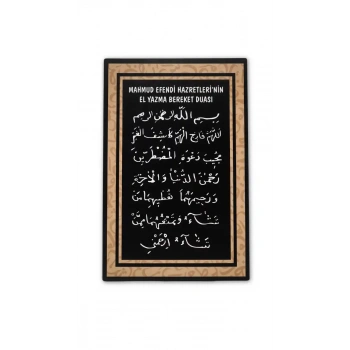 MAHMUD EFENDİ HAZRETLERİ'NİN
EL YAZMA BEREKET DUASI
بِسْمِ اللهِ الرَّحْمٰنِ الرَّحِيمِ
اَللّٰهُمَّ فَارِجَ الْهَمِّ كَاشِفَ الْغَمِّ
مُجِيبَ دَعْوَةِ الْمُضْطَرِّينَ
رَحْمٰنَ الدُّنْيَا وَالْاٰخِرَةِ
وَرَحِيمَهُمَا تُعْطِيهِمَا مَنْ
تَشَاءُ وَتَمْنَعُهُمَا مِمَّنْ
تَشَاءُ اِرْحَمْنِي